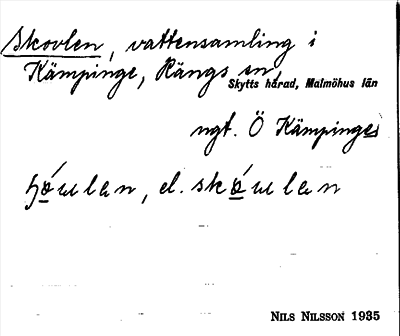 Skovlen, vattensamling i
Kämpinge, Rängs sn,
Skytts härad, Malmöhus län
ngt. Ö Kämpinge
el. skǻulan
NILS NILSSON 1935